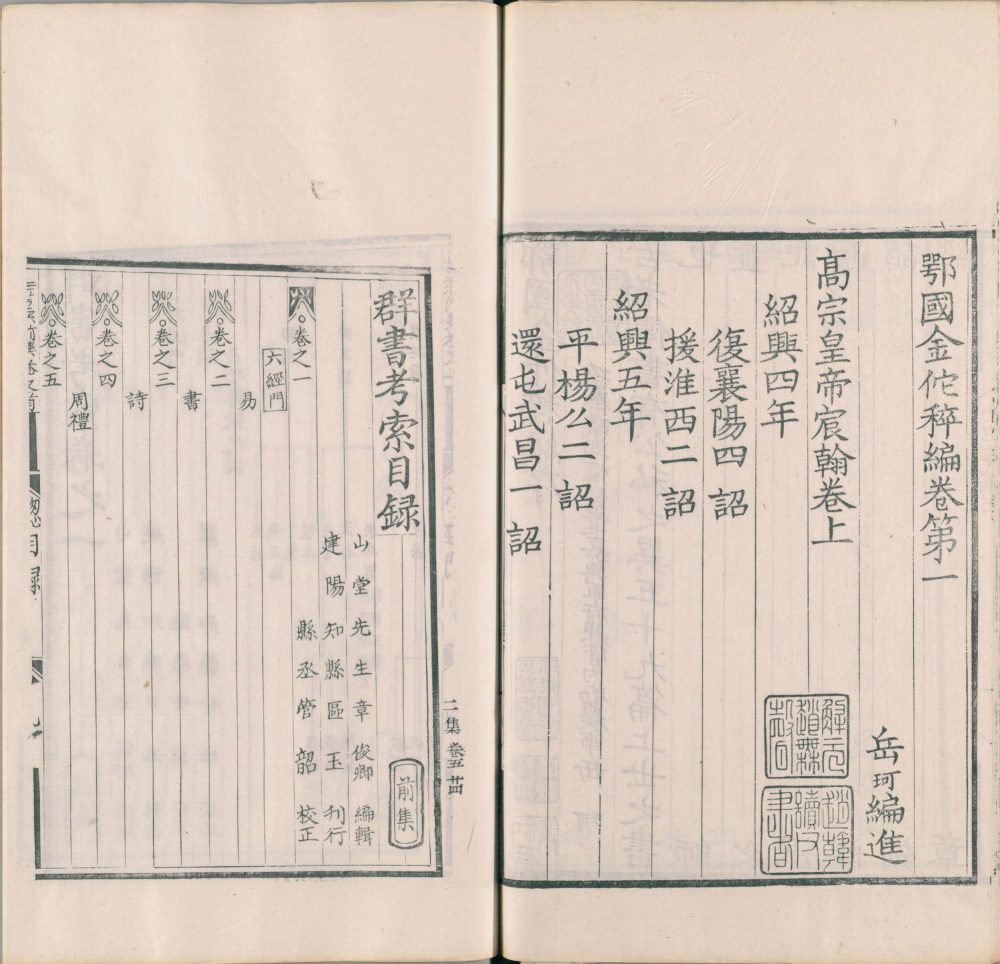 鄂國金佗稡編卷第一
岳珂編進
高宗皇帝宸翰卷上
紹興四年
復襄陽四詔
援淮西二詔
紹興五年
平楊么二詔
還屯武昌一詔
二集卷五 廿四
群書考索目録
前集
山堂先生章俊卿編輯
建陽知縣區玉刊行
縣丞管韶校正
卷之一
六經門
易
卷之二
書
卷之三
詩
卷之四
周禮
卷之五
目録